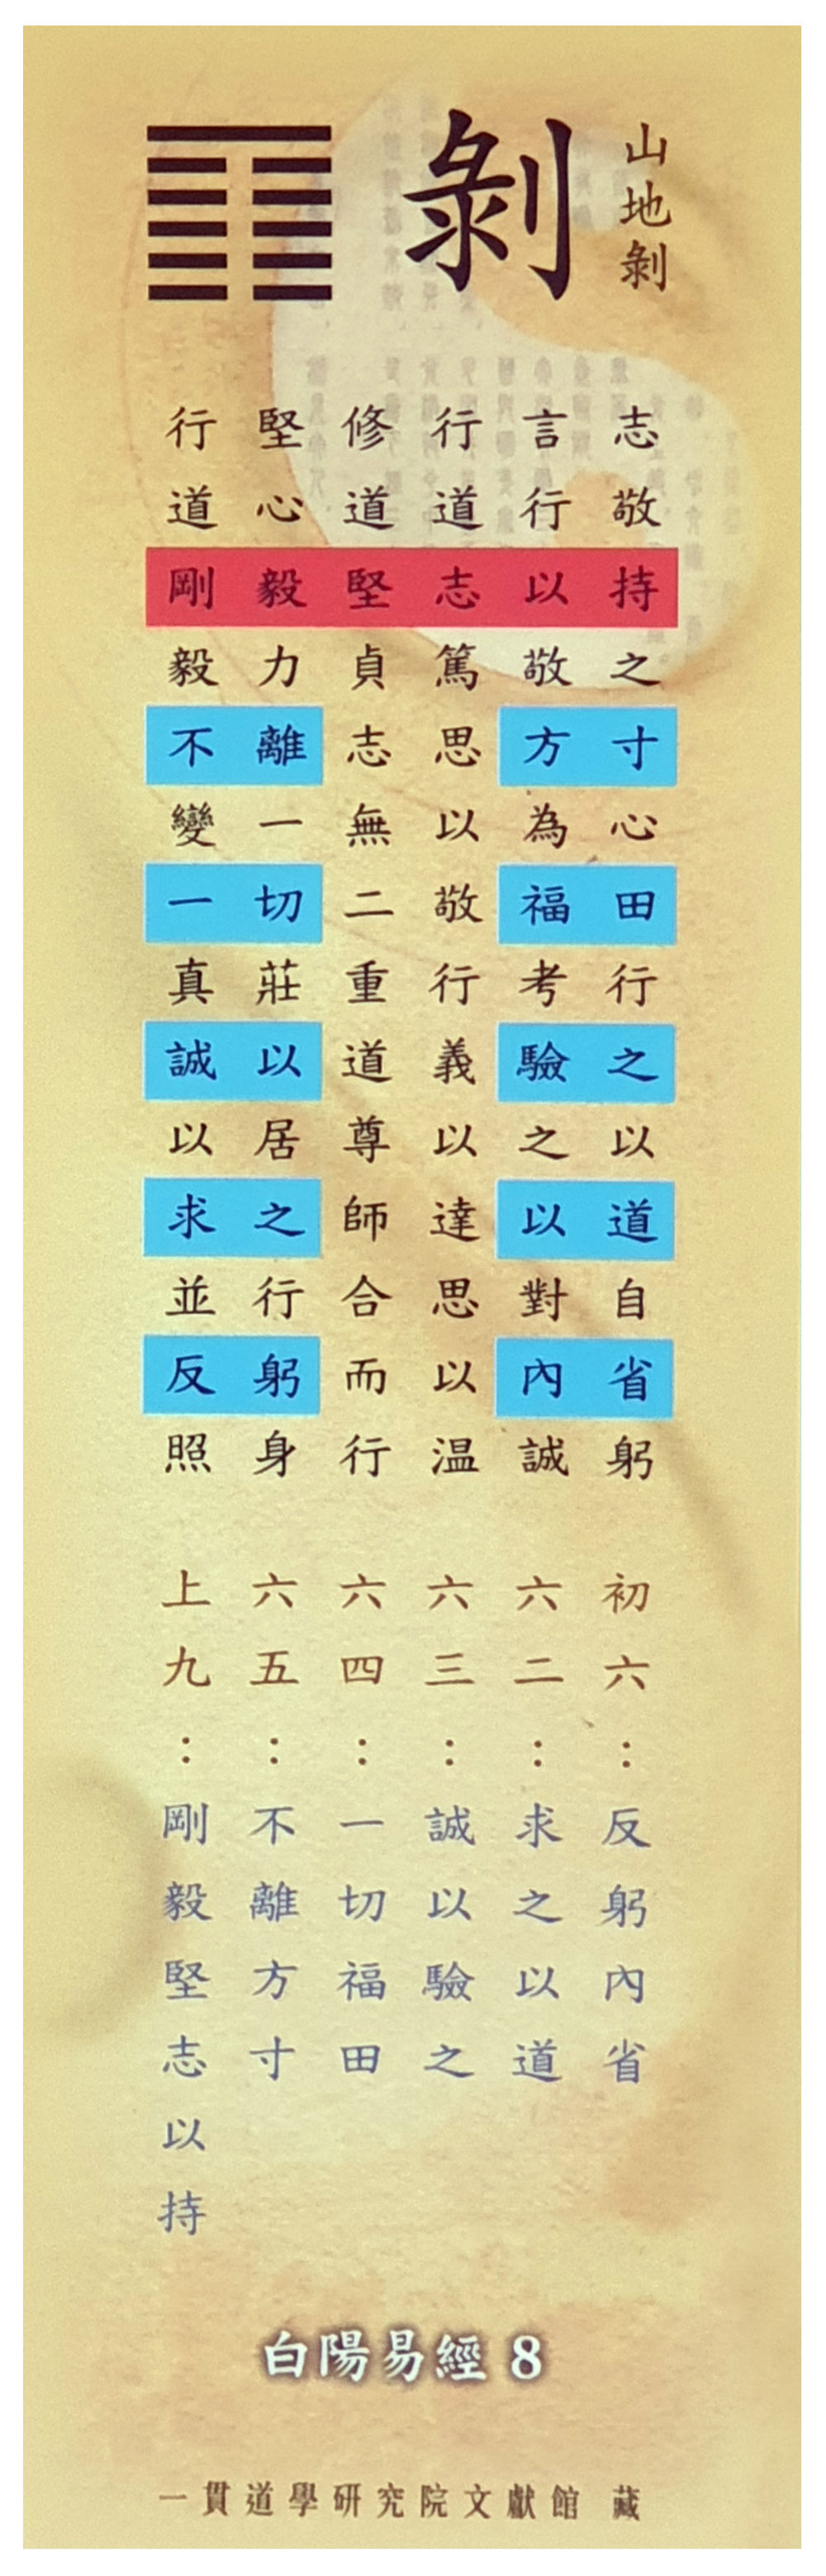 山地剝
剝
志敬持之寸心田行之以道自省躬
言行以敬方為福考驗之以對內誠
行道志篤思以敬行義以達思以温
修道堅貞志無二重道尊師合而行
堅心毅力離一切莊以居之行躬身
行道剛毅不變一真誠以求並反照
初六：反躬內省
六二：求之以道
六三：誠以驗之
六四：一切福田
六五：不離方寸
上九：剛毅堅志以持
白陽易經 8
一貫道學研究院文獻館 藏